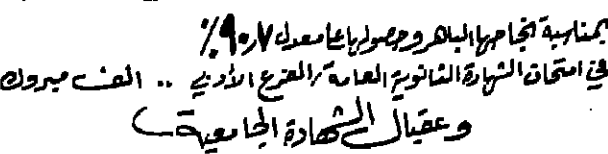 بمناسبة نجاحها الباهر وحصولها على معدل ٩٠،٧٪
في امتحان الشهادة الثانوية العامة / الفرع الأدبي .. الف مبروك
وعقبال الشهادة الجامعية